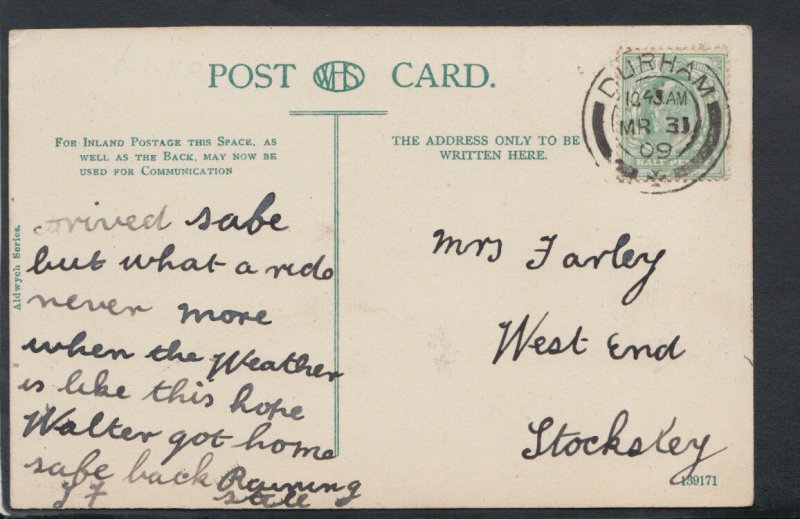 POST WHS CARD.
FOR INLAND POSTAGE THIS SPACE, AS
WELL AS THE BACK, MAY NOW BE
USED FOR COMMUNICATION
THE ADDRESS ONLY TO BE
WRITTEN HERE.
DURHAM
MR 31
09
HALF PE
Aldwych Series.
arrived safe
but what a ride
never more
when the Weather
is like this hope
Walter got home
safe back Raining
still
J F
Mrs Farley
West End
Stocksley
139171